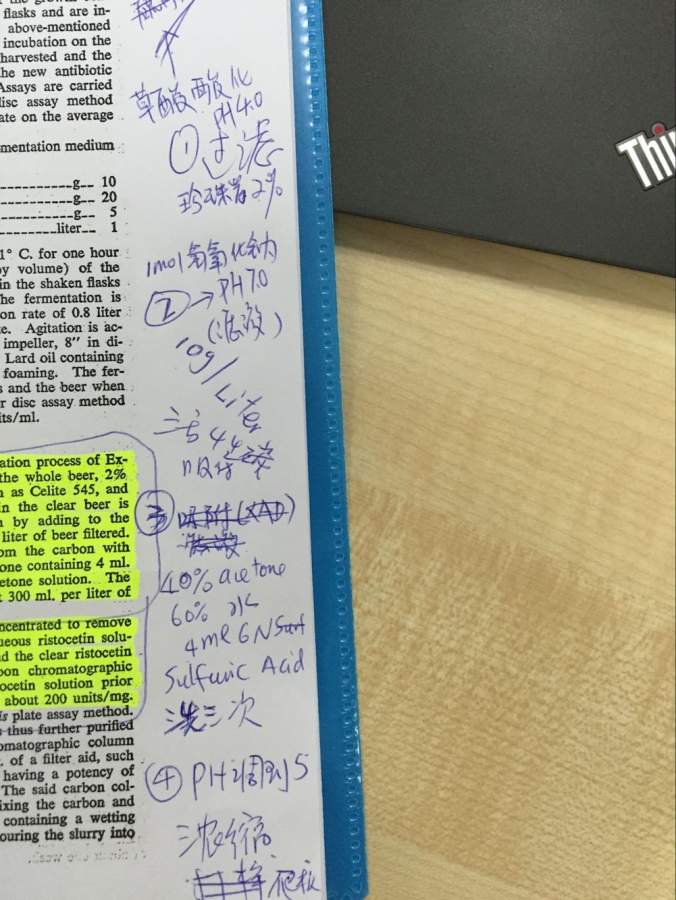 flasks and are in-
above-mentioned
incubation on the
harvested and the
he new antibiotic
Assays are carried
disc assay method
ate on the average
mentation medium
------------g-- 10
---------g-- 20
---------g-- 5
-------liter-- 1
1° C. for one hour
by volume) of the
in the shaken flasks
he fermentation is
on rate of 0.8 liter
e. Agitation is ac-
impeller, 8" in di-
Lard oil containing
foaming. The fer-
s and the beer when
r disc assay method
its/ml.
ation process of Ex-
the whole beer, 2%
n as Celite 545, and
in the clear beer is
n by adding to the
liter of beer filtered.
om the carbon with
one containing 4 ml.
etone solution. The
t 300 ml. per liter of
ncentrated to remove
ueous ristocetin solu-
d the clear ristocetin
bon chromatographic
ocetin solution prior
about 200 units/mg.
is plate assay method.
thus further purified
omatographic column
of a filter aid, such
having a potency of
The said carbon col-
ixing the carbon and
containing a wetting
ouring the slurry into
草酸酸化
PH4.0
① 过滤
珍珠岩2%
1mol 氢氧化钠
② → PH7.0
(滤液)
10g/Liter
③
吸附(XAD)
40% acetone
60% 水
4ml 6N
Sulfuric Acid
洗三次
④ PH调到5
浓缩
爬板
Thin